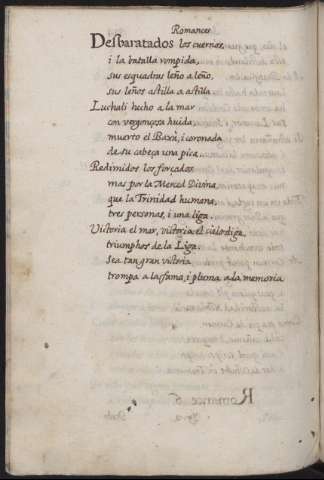 Romances
Desbaratados los cuernos,
i la batalla rompida,
sus esquadras leño a leño,
sus leños astilla a astilla
Luchali hecho a la mar
con vergonçosa huida
muerto el Baxà, i coronada
de su cabeça una pica.
Redimidos los forçados
mas por la Merced Divina
que la Trinidad humana,
tres personas, i una liga.
Victoria el mar, victoria el cielo diga,
triumphos de la Liga.
Sea tan gran victoria
trompa a la fama, i pluma a la memoria